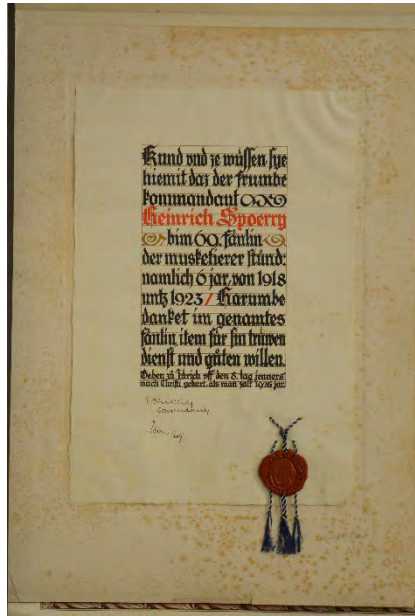 Kund vnd ze wüssen sye
hiemit daz der frumbe
kommandant
Heinrich Spoerry
bim 60. fänlin
der musketierer stünd:
namlich 6 jar, von 1918
untz 1923 / Harumbe
danket im genamtes
fänlin, item für sin trüwen
dienst und güten willen.
Geben zü Zürich vff den 8. tag jenners
nach Christi geburt, als man zalt 1926 jar.